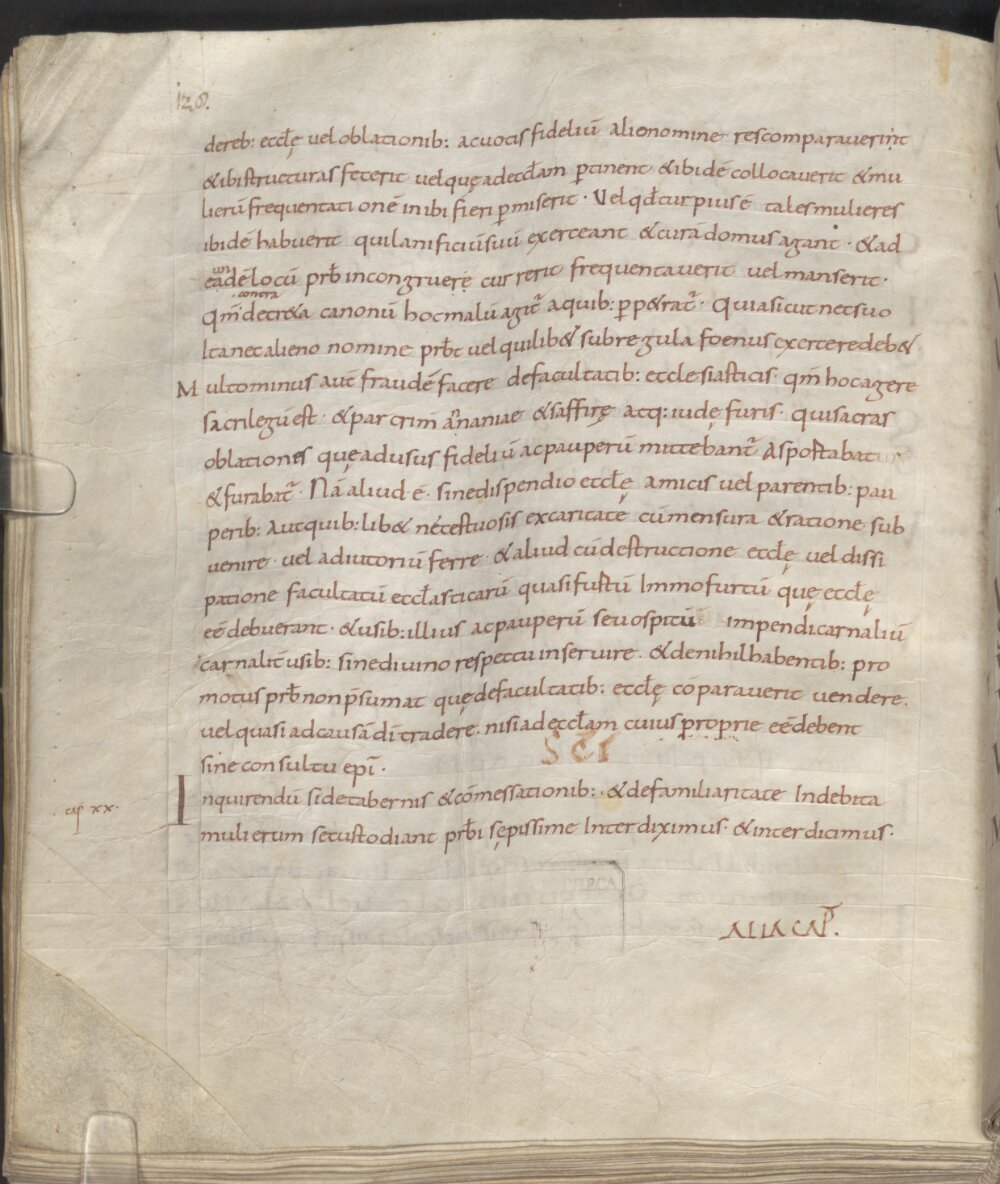 128.
dereb: eccłę uel oblationib: ac uotis fideliū alieno nomine res comparauerint
& ibi structuras fecerit uel quę ad eccłam ꝑtinent & ibidē collocauerit & mu
lierū frequentationē inibi fieri ꝑmiserit · Vel qđ turpius ē tales mulieres
ibidē habuerit qui lanificiū suū exerceant & curā domus agant · & ad
eadē locū prƀ incongruere currerit frequentauerit uel manserit ·
contra
Qm̄ decr&a canonū hoc malū agit̃ a quib: ꝑp&rat̃ · Quia sicut nec suo
Ita nec alieno nomine prƀt uel quilib& sub regula foenus exercere deb& ·
Multo minus aut̄ fraudē facere de facultatib: ecclesiasticis · qm̄ hoc agere
sacrilegiū est · & par crim̄ ananiae & saffirę atq: iudę furis · qui sacras
oblationes quę ad usus fideliū ac pauperū mittebant̃ Asportabat
& furabat̃ · Nā aliud ē · sine dispendio eccłę amicis uel parentib: pau
perib: Aut quib:lib& necestuosis ex caritate cū mensura & ratione sub
uenire · uel adiutoriū ferre · & aliud cū destructione eccłę uel dissi
patione facultatū eccłasticarū quasi fustū Immo furtū quę eccłę
eē debuerant · & usib: illius ac pauperū seu ospitū impendi carnaliū
carnalit̃ usib: sine diuino respectu inseruire · & de nihil habentib: pro
motus prƀ non p̄sumat quę de facultatib: eccłę cōparauerit uendere ·
uel quasi ad causā dī tradere · nisi ad eccłam cuius ꝓprie eē debent
sine consultu epī ·
cap xx ·
Inquirendū si de tabernis & cōmessationib: · & de familiaritate Indebita
mulierum se custodiant prƀi sępissime Interdiximus · & interdicimus ·
ALIA CAP̄.